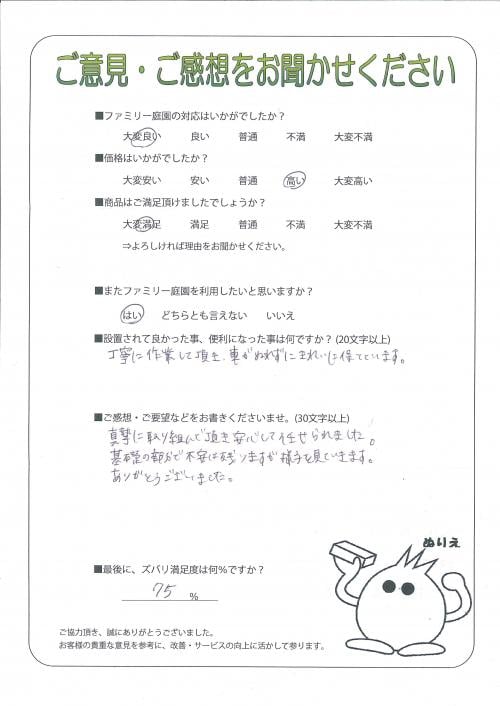 ご意見・ご感想をお聞かせください
■ファミリー庭園の対応はいかがでしたか？
大変良い 良い 普通 不満 大変不満
■価格はいかがでしたか？
大変安い 安い 普通 高い 大変高い
■商品はご満足頂けましたでしょうか？
大変満足 満足 普通 不満 大変不満
⇒よろしければ理由をお聞かせください。
■またファミリー庭園を利用したいと思いますか？
はい どちらとも言えない いいえ
■設置されて良かった事、便利になった事は何ですか？(20文字以上)
丁寧に作業して頂き、車がぬれずにきれいに保てています。
■ご感想・ご要望などをお書きくださいませ。(30文字以上)
真摯に取り組んで頂き安心して任せられました。
基礎の部分で不安は残りますが様子を見ていきます。
ありがとうございました。
ぬりえ
■最後に、ズバリ満足度は何％ですか？
75 %
ご協力頂き、誠にありがとうございました。
お客様の貴重な意見を参考に、改善・サービスの向上に活かして参ります。